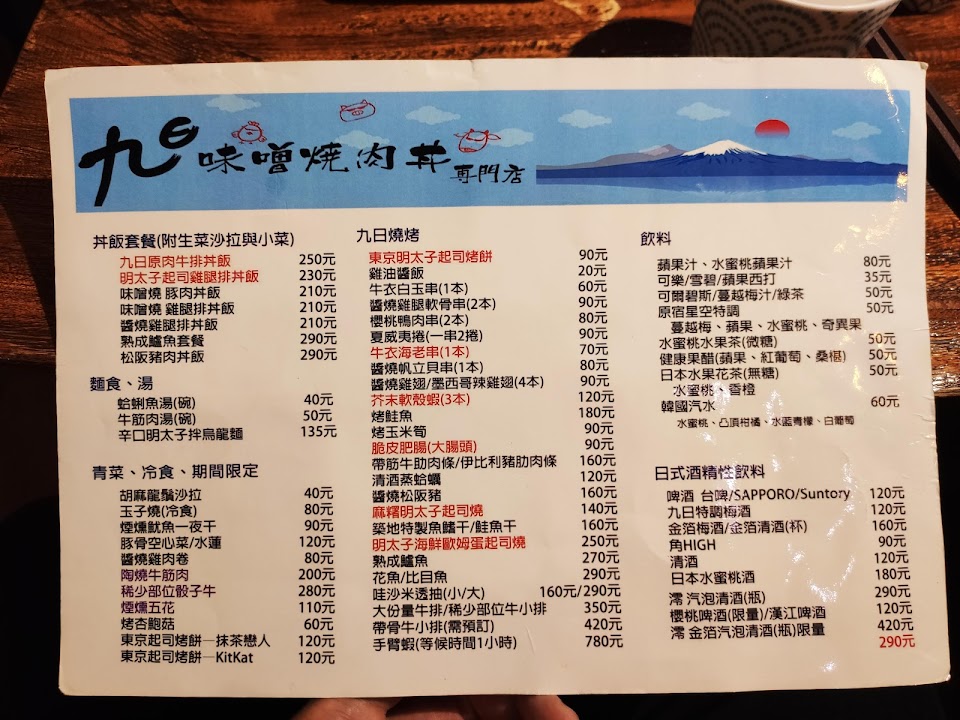 九日味噌燒肉丼專門店
丼飯套餐(附生菜沙拉與小菜)
九日原肉牛排丼飯 250元
明太子起司雞腿排丼飯 230元
味噌燒 豚肉丼飯 210元
味噌燒 雞腿排丼飯 210元
醬燒雞腿排丼飯 210元
熟成鱸魚套餐 290元
松阪豬肉丼飯 290元
麵食、湯
蛤蜊魚湯(碗) 40元
牛筋肉湯(碗) 50元
辛口明太子拌烏龍麵 135元
青菜、冷食、期間限定
胡麻龍鬚沙拉 40元
玉子燒(冷食) 80元
煙燻魷魚一夜干 90元
豚骨空心菜/水蓮 120元
醬燒雞肉卷 80元
陶燒牛筋肉 200元
稀少部位骰子牛 280元
煙燻五花 110元
烤杏鮑菇 60元
東京起司烤餅─抹茶戀人 120元
東京起司烤餅─KitKat 120元
九日燒烤
東京明太子起司烤餅 90元
雞油醬飯 20元
牛衣白玉串(1本) 60元
醬燒雞腿軟骨串(2本) 90元
櫻桃鴨肉串(2本) 80元
夏威夷捲(一串2捲) 90元
牛衣海老串(1本) 70元
醬燒帆立貝串(1本) 80元
醬燒雞翅/墨西哥辣雞翅(4本) 90元
芥末軟殼蝦(3本) 120元
烤鮭魚 180元
烤玉米筍 90元
脆皮肥腸(大腸頭) 90元
帶筋牛肋肉條/伊比利豬肋肉條 160元
清酒蒸蛤蠣 120元
醬燒松阪豬 160元
麻糬明太子起司燒 140元
築地特製魚鰭干/鮭魚干 160元
明太子海鮮歐姆蛋起司燒 250元
熟成鱸魚 270元
花魚/比目魚 290元
哇沙米透抽(小/大) 160元/290元
大份量牛排/稀少部位牛小排 350元
帶骨牛小排(需預訂) 420元
手臂蝦(等候時間1小時) 780元
飲料
蘋果汁、水蜜桃蘋果汁 80元
可樂/雪碧/蘋果西打 35元
可爾碧斯/蔓越梅汁/綠茶 50元
原宿星空特調 50元
蔓越梅、蘋果、水蜜桃、奇異果
水蜜桃水果茶(微糖) 50元
健康果醋(蘋果、紅葡萄、桑椹) 50元
日本水果花茶(無糖) 50元
水蜜桃、香橙
韓國汽水 60元
水蜜桃、凸頂柑橘、水藍青檸、白葡萄
日式酒精性飲料
啤酒 台啤/SAPPORO/Suntory 120元
九日特調梅酒 120元
金箔梅酒/金箔清酒(杯) 160元
角HIGH 90元
清酒 120元
日本水蜜桃酒 180元
澪 汽泡清酒(瓶) 290元
櫻桃啤酒(限量)/漢江啤酒 120元
澪 金箔汽泡清酒(瓶)限量 420元
290元